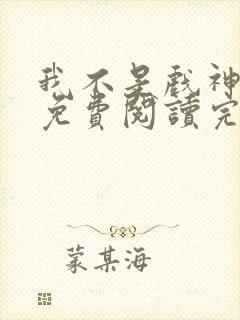 我不是戲神
免費閱讀完
蒙其海